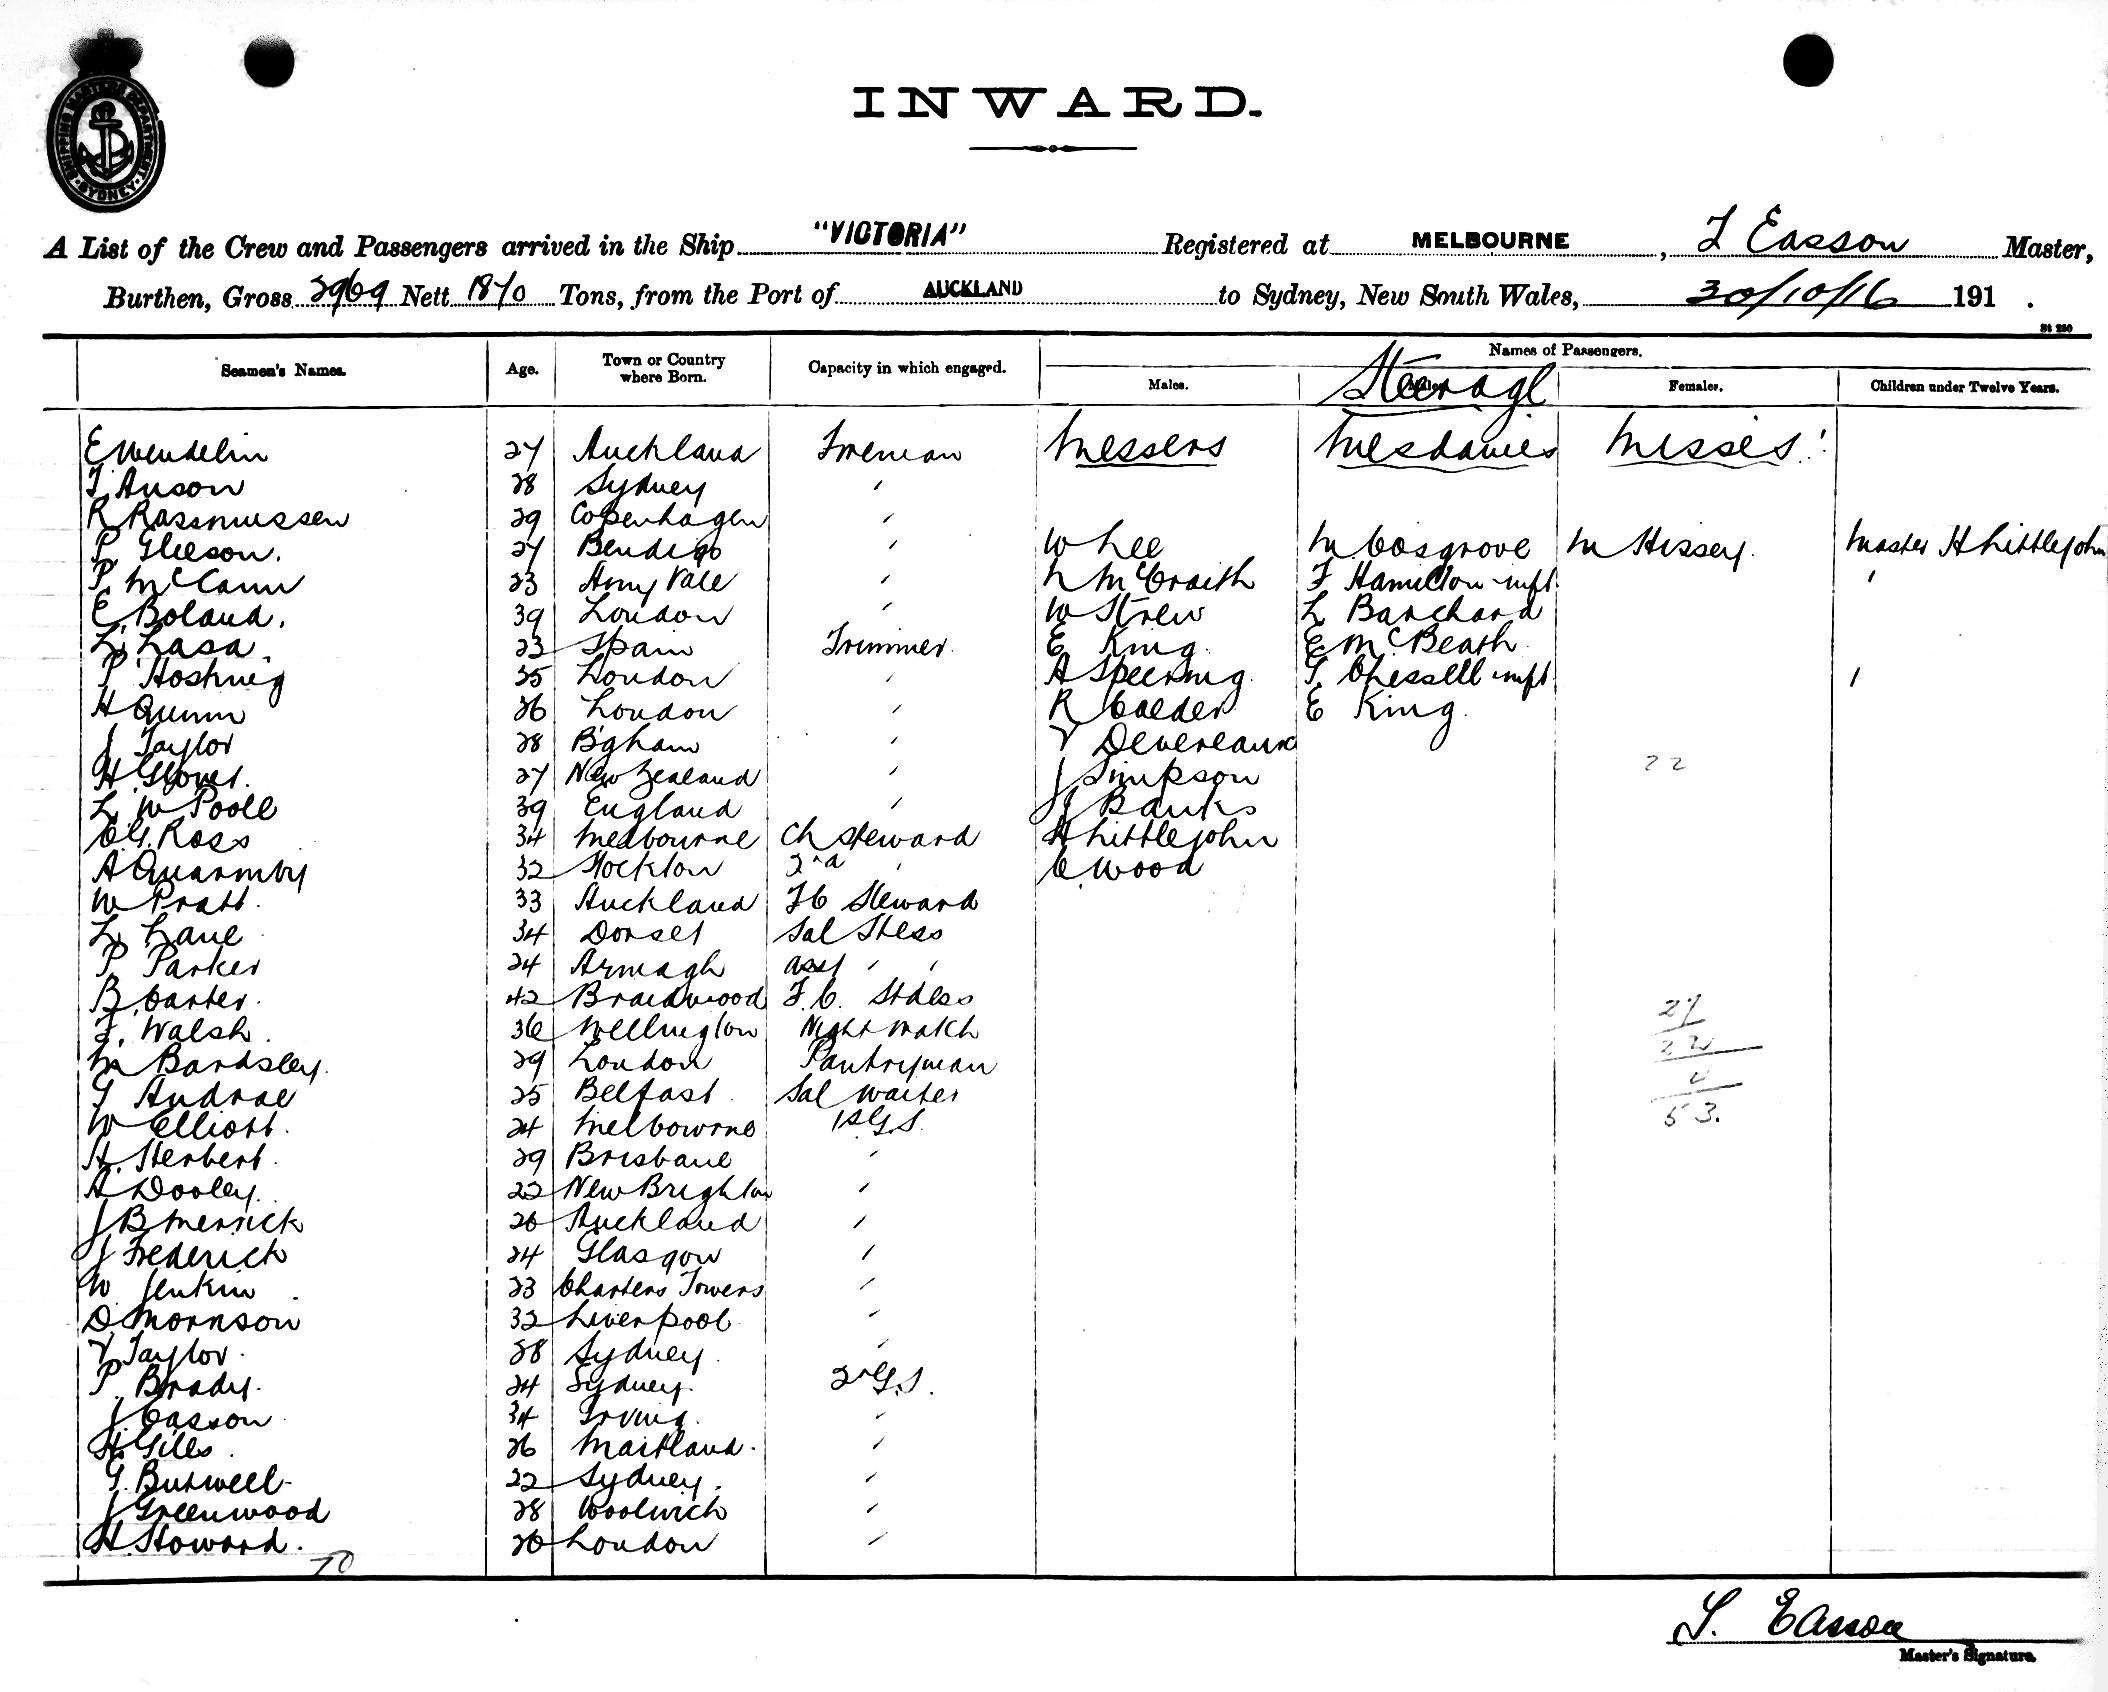 SHIPPING MASTER'S DEPARTMENT SYDNEY
INWARD.
A List of the Crew and Passengers arrived in the Ship "VICTORIA" Registered at MELBOURNE, Easson Master,
Burthen, Gross 2969 Nett 1870 Tons, from the Port of AUCKLAND to Sydney, New South Wales, 30/10/16 191 .
St 250
Seamen's Names. Age. Town or Country where Born. Capacity in which engaged. Names of Passengers.
Males. Steerage Females. Children under Twelve Years.
E Wendelin 27 Auckland Fireman Messers Mesdames Misses
T. Anson 28 Sydney "
R Rassmussen 29 Copenhagen "
P. Gleeson. 27 Bendigo " W Lee M Cosgrove M Hissey. Master H Littlejohn
P. McCann 23 Vale " N McCraith F Hamilton inft 1
E. Boland. 39 London " W Strew L Banchard
L. Lasa. 23 Spain Trimmer. E King. E McBeath.
P Hosking 35 London " A Speering G. Chessell inft 1
H Quinn 26 London " R Calder E King.
J Taylor 28 B'gham " V Devereaux
H Glover. 27 New Zealand " J Simpson 22
L. W Poole 39 England " J Banks
C.G. Ross 34 Melbourne Ch Steward H Littlejohn
A Quarmby 32 Stockton 2nd " C. Wood
W Pratt. 33 Auckland FC Steward
L. Lane 34 Dorset Sal Stess
P. Parker 24 Armagh asst " "
B. Carter. 42 Braidwood F.C. Stdess 29
F. Walsh. 36 Wellington Night Watch 22
M Bardsley. 29 London Pantryman
G Andrae 25 Belfast Sal Waiter
W Elliott. 24 Melbourne 1st G.S. 53.
H. Herbert. 29 Brisbane "
A Dooley. 22 New Brighton "
J B Merrick 20 Auckland "
J Frederick 24 Glasgow "
W Jenkin 23 Charters Towers "
D Morrison 32 Liverpool "
V Taylor. 28 Sydney. "
P. Brady. 24 Sydney. 2nd G.S.
J. Easson 34 Irving. "
H. Gills. 26 Maitland. "
G. Butwell 22 Sydney. "
J Greenwood 28 Woolwich "
H. Howard. 20 London "
70
Easson
Master's Signature.